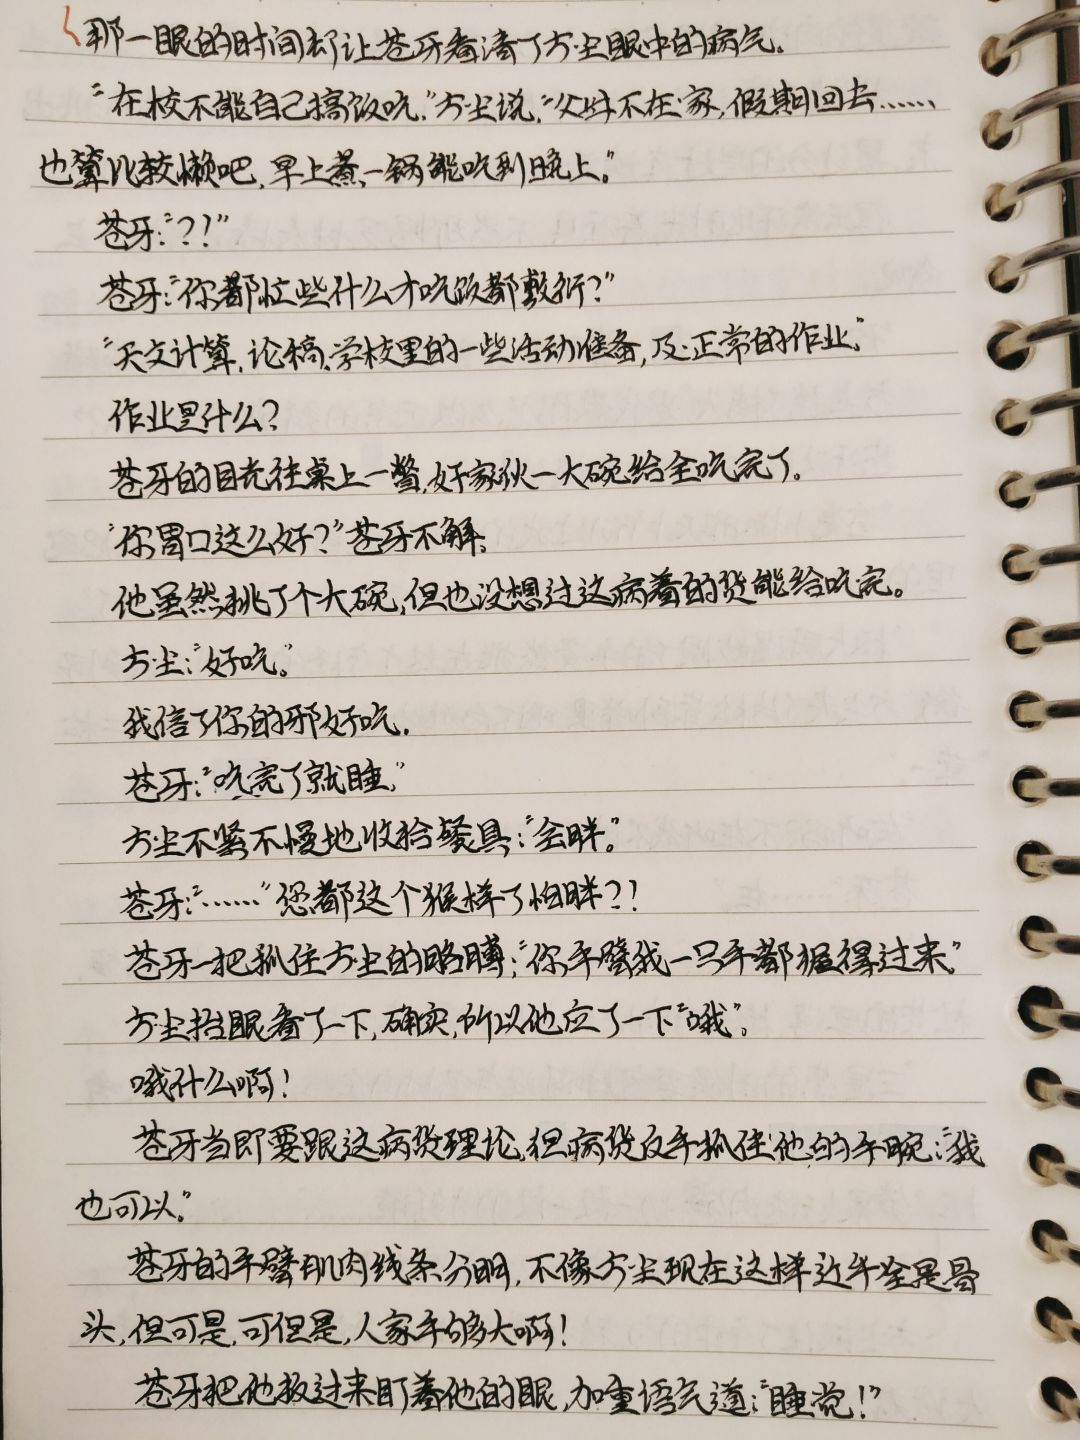 那一眼的时间却让苍牙看清了方尘眼中的病气。
“在校不能自己搞饭吃。”方尘说,“父母不在家,假期回去……
也算比较懒吧,早上煮一锅能吃到晚上。”
苍牙:“?!”
苍牙:“你都忙些什么才吃饭都敷衍?”
“天文计算,论稿,学校里的一些活动准备,及正常的作业。”
作业是什么?
苍牙的目光往桌上一瞥,好家伙一大碗给全吃完了。
“你胃口这么好?”苍牙不解。
他虽然挑了个大碗,但也没想过这病着的货能给吃完。
方尘:“好吃。”
我信了你的邪好吃.
苍牙:“吃完了就睡。”
方尘不紧不慢地收拾餐具:“会胖。”
苍牙:“……”您都这个猴样了怕胖?!
苍牙一把抓住方尘的胳膊:“你手臂我一只手都握得过来。”
方尘抬眼看了一下,确实,所以他应了一下“哦”。
哦什么啊!
苍牙当即要跟这病货理论,但病货反手抓住他的手腕:“我
也可以。”
苍牙的手臂肌肉线条分明,不像方尘现在这样近乎全是骨
头,但可是,可但是,人家手够大啊!
苍牙把他扳过来盯着他的眼,加重语气道:“睡觉!”